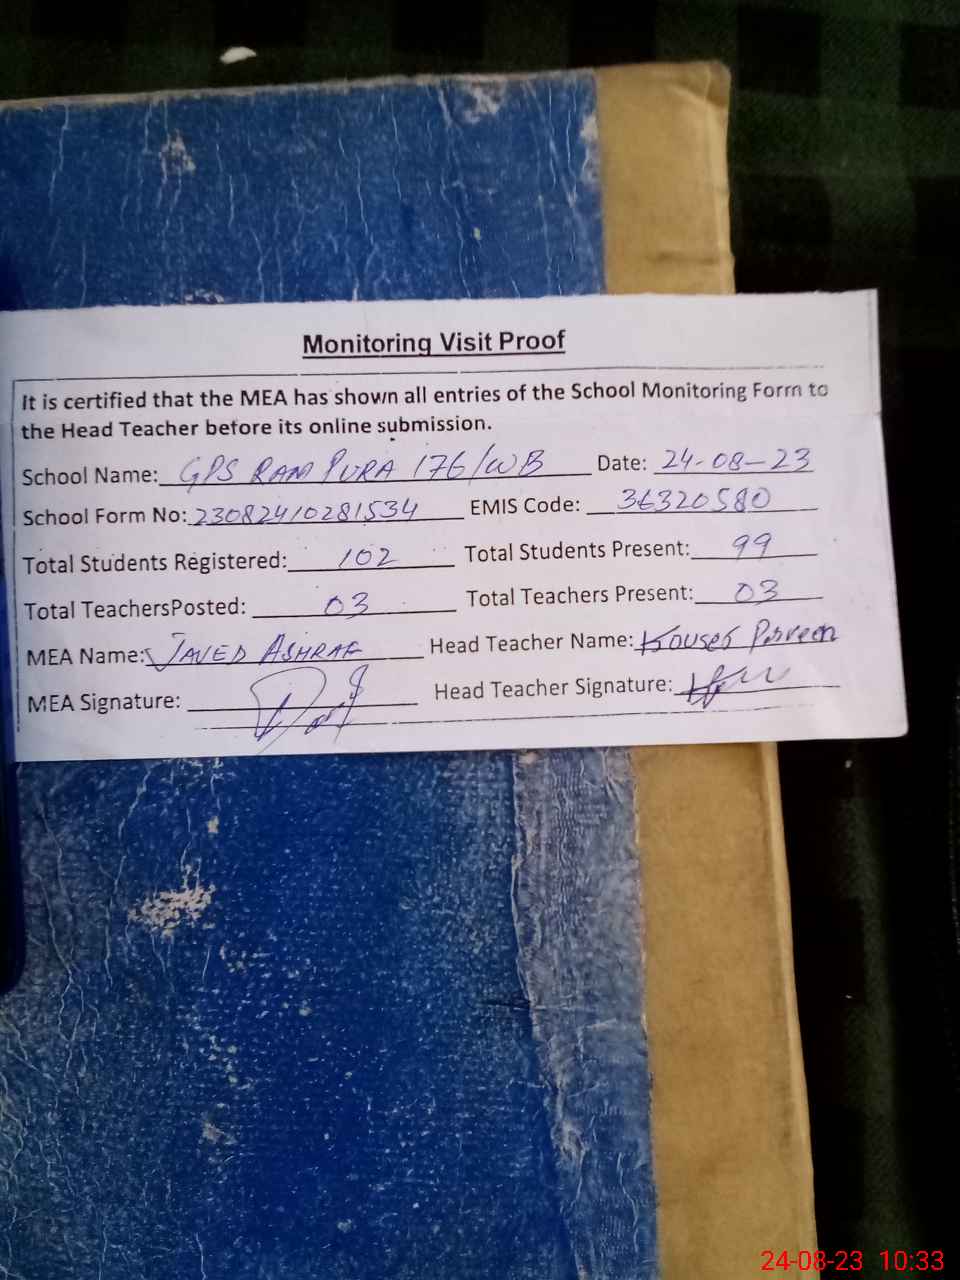 Monitoring Visit Proof
It is certified that the MEA has shown all entries of the School Monitoring Form to
the Head Teacher before its online submission.
School Name: GPS RAM PURA 176/WB Date: 24-08-23
School Form No: 23082410281534 EMIS Code: 36320580
Total Students Registered: 102 Total Students Present: 99
Total TeachersPosted: 03 Total Teachers Present: 03
MEA Name: JAVED ASHRAF Head Teacher Name: Kouser Parveen
MEA Signature: Head Teacher Signature:
24-08-23 10:33